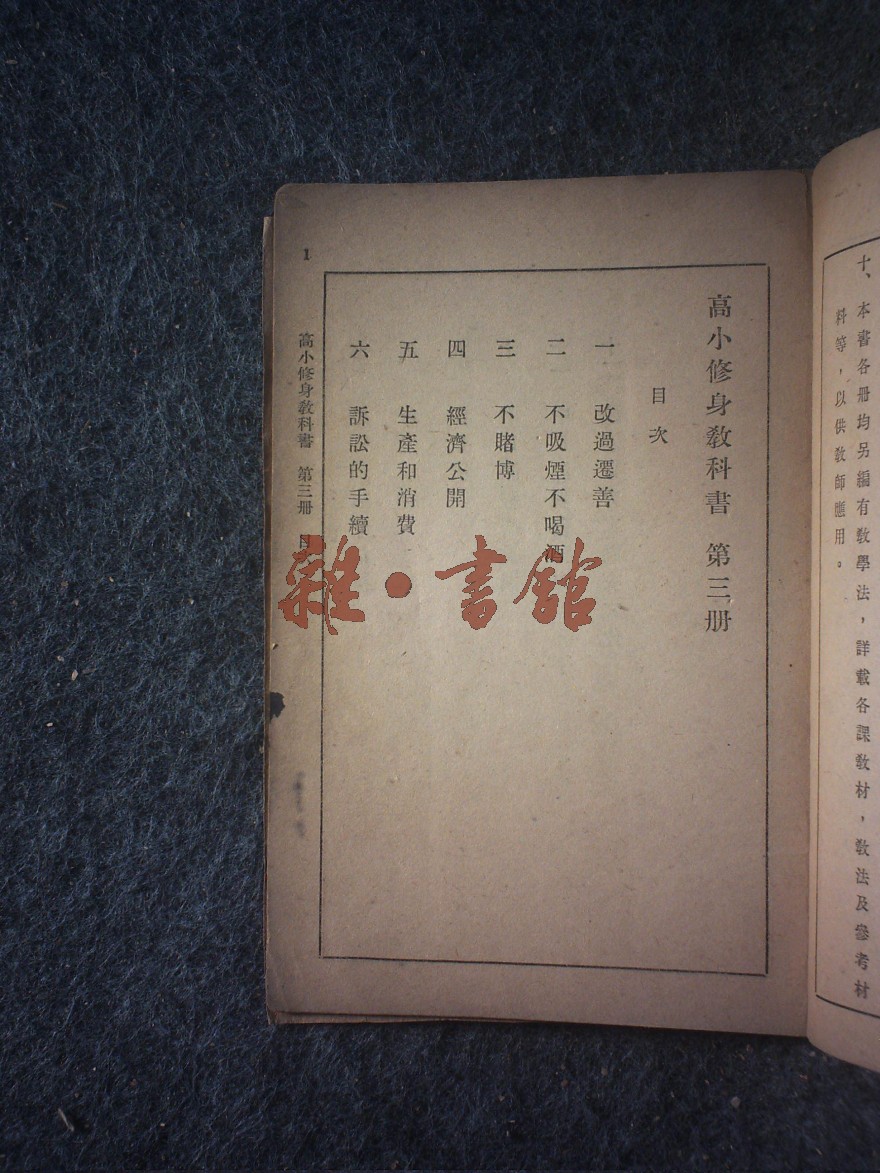 十、本書各册均另編有教學法，詳載各課教材，教法及參考材
料等，以供教師應用。
高小修身教科書 第三册
目次
一 改過遷善
二 不吸煙不喝酒
三 不賭博
四 經濟公開
五 生產和消費
六 訴訟的手續
1
高小修身教科書 第三册 目
雜·書館